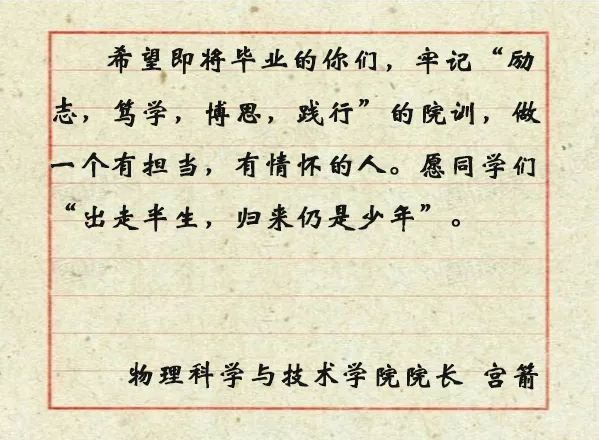 希望即将毕业的你们，牢记“励
志，笃学，博思，践行”的院训，做
一个有担当，有情怀的人。愿同学们
“出走半生，归来仍是少年”。
物理科学与技术学院院长 宫箭